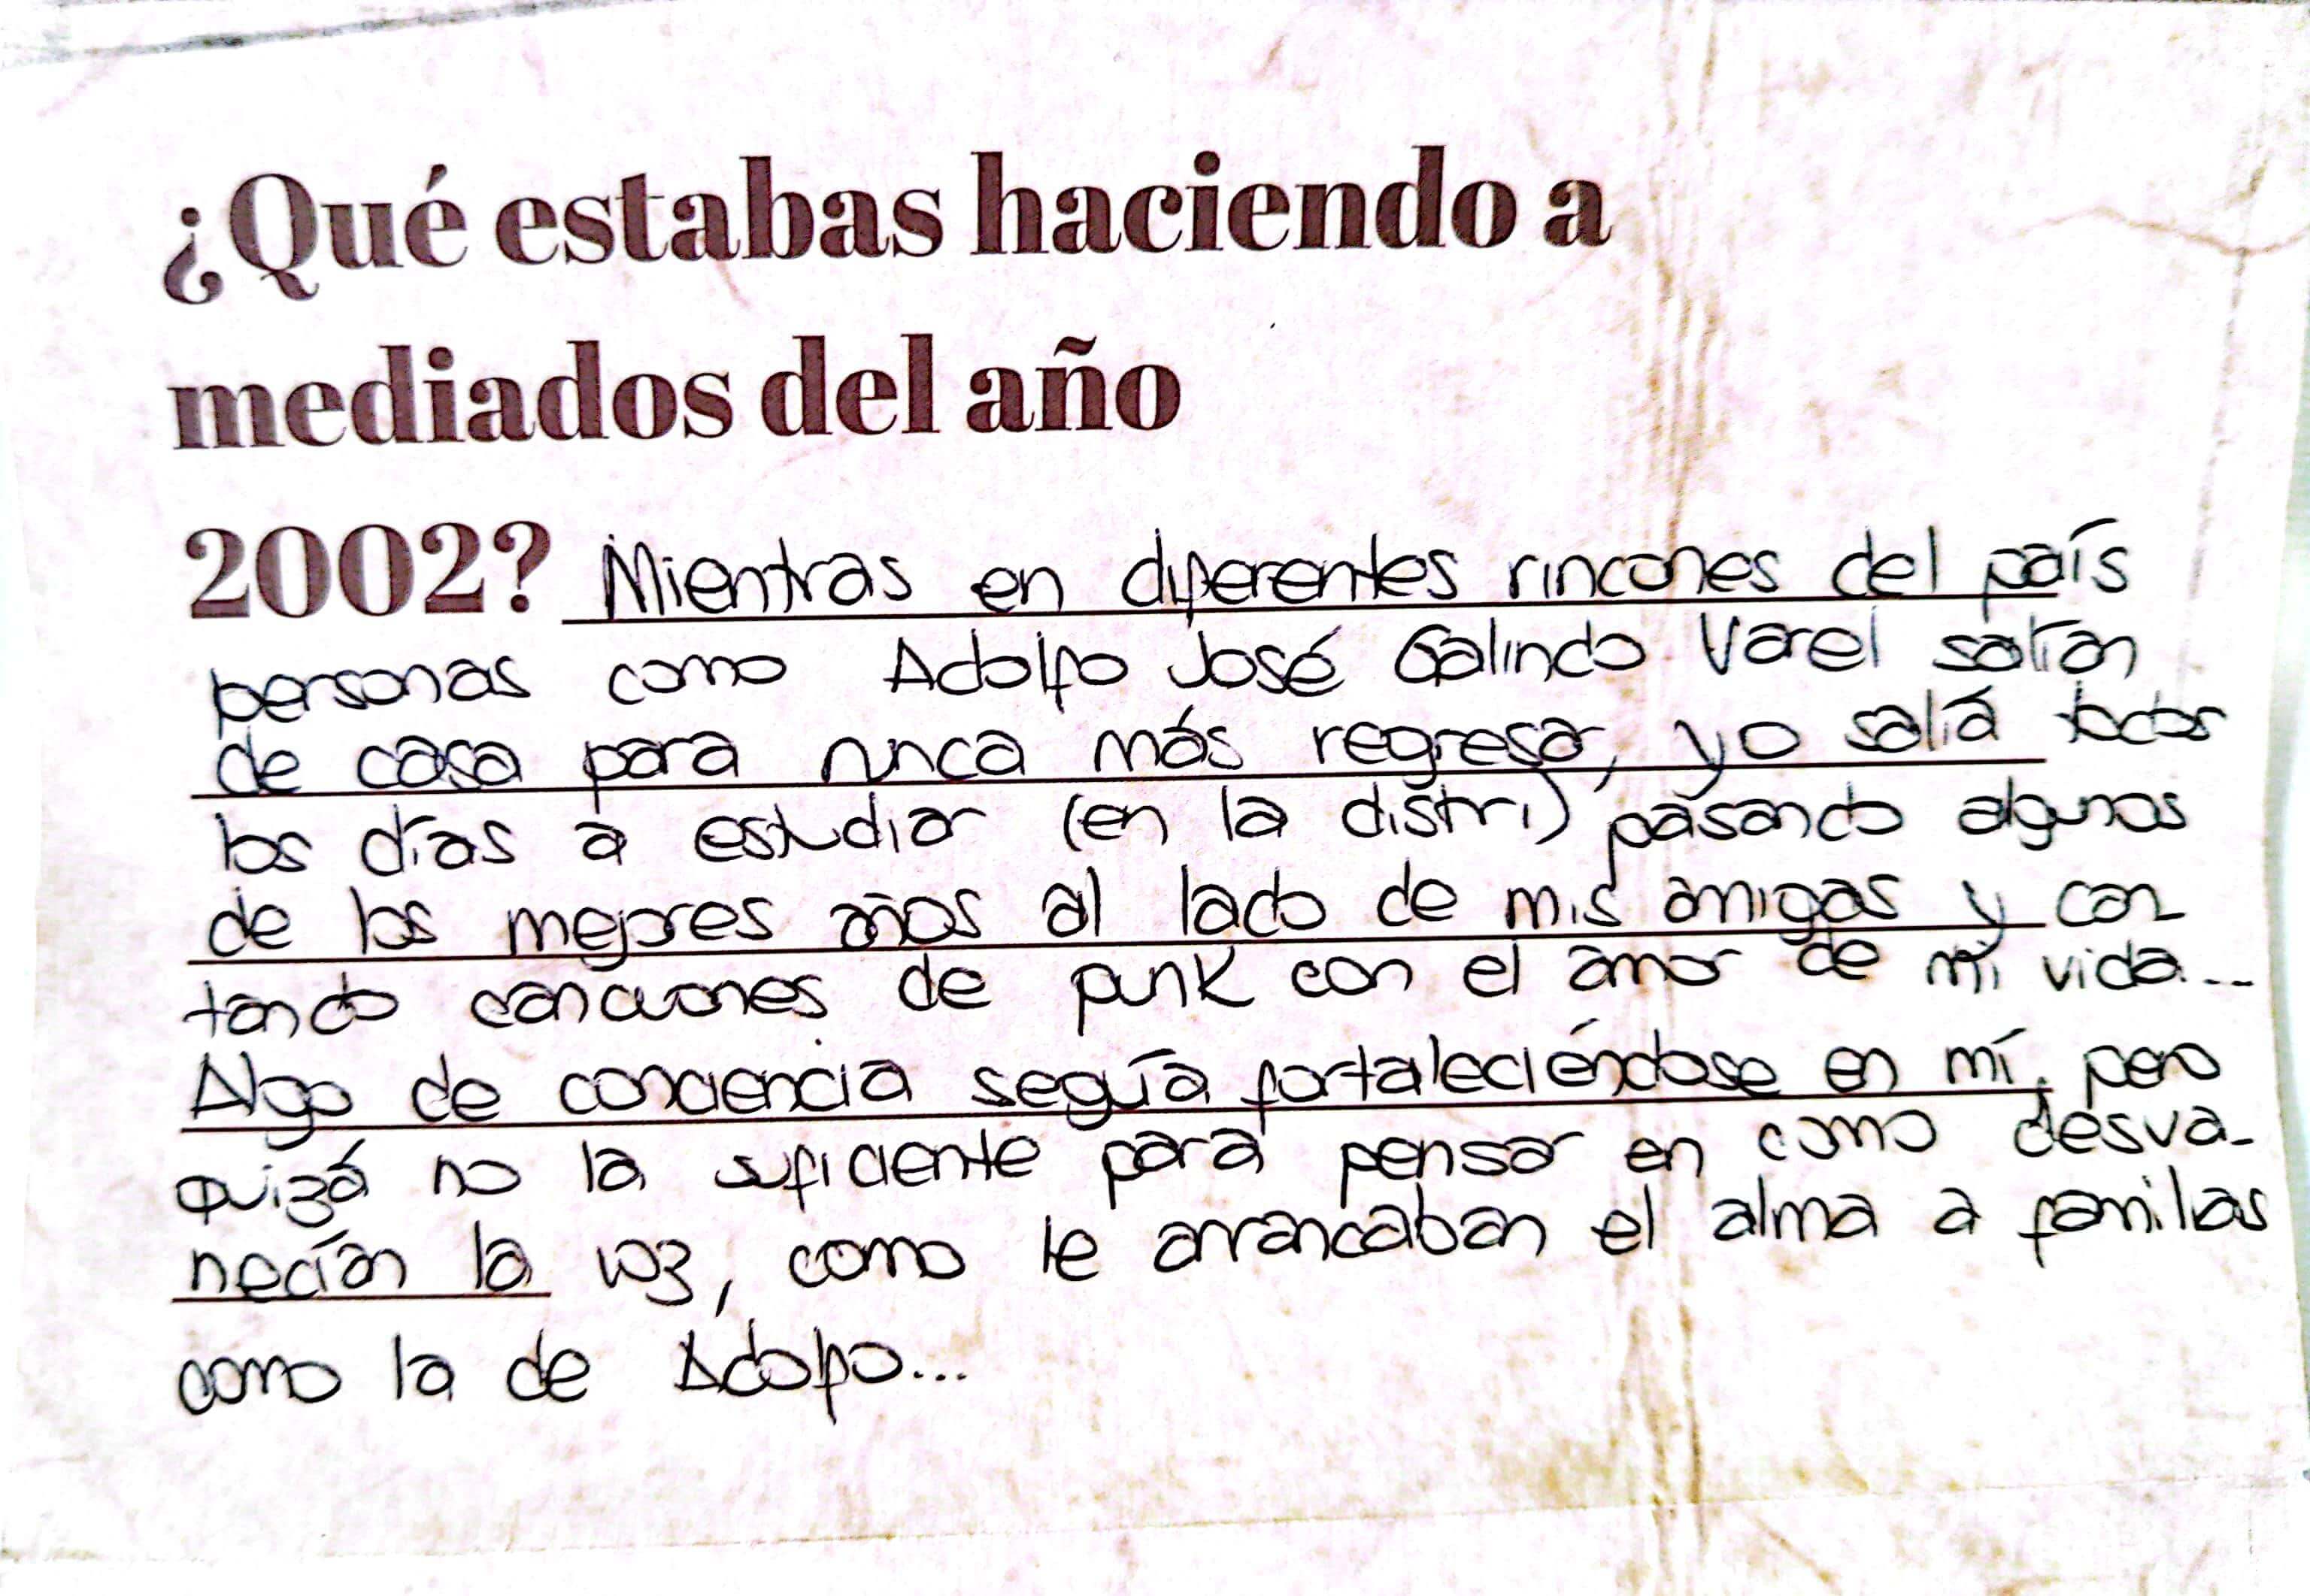 ¿Qué estabas haciendo a
mediados del año
2002? Mientras en diferentes rincones del país
personas como Adolfo José Galindo Varel salían
de casa para nunca más regresar, yo salía todos
los días a estudiar (en la distri) pasando algunos
de los mejores años al lado de mis amigas y can-
tando canciones de punk con el amor de mi vida...
Algo de conciencia seguía fortaleciéndose en mí, pero
quizá no la suficiente para pensar en como desva-
necían la voz, como le arrancaban el alma a familias
como la de Adolfo...